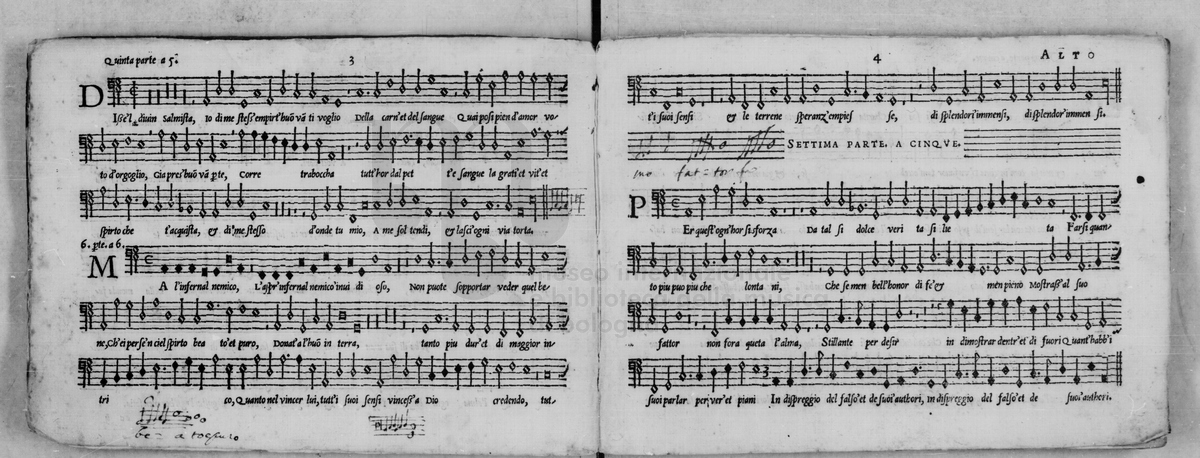 Quinta parte a 5.
3
D
Isse'l divin Salmista, Io di me stess'empirt'huõ vã ti voglio Della carn'et del sangue Quai posi pien d'amor vo-
to d'orgoglio, Gia pres'huõ vã pte, Corre traboccha tutt'hor dal pet t'e sangue la grati'et vit'et
spirto che t'acquista, & di me stesso d'onde tu mio, A me sol tendi, & lasci'ogni via torta.
6. pte. a 6.
M
A l'infernal nemico, L'aspr'infernal nemico inui di oso, Non puote sopportar veder quel be-
ne, Ch'ei perse'n ciel spirto bea to'et puro, Donat'a l'huõ in terra, tanto piu dur'et di maggior in-
tri co, Quanto nel vincer lui, tutt'i suoi sensi vincess'a Dio credendo, tut-
4
ALTO
t'i suoi sensi & le terrene speranz'empies se, di splendor'immensi, di splendor'immen si.
SETTIMA PARTE. A CINQVE.
P
Er quest'ogn'hor si sforza Da tal si dolce veri ta si lie ta Farsi quan-
to piu puo piu che lonta ni, Che se men bell'honor di fe'& men pieno Mostrass'al suo
fattor non fora queta l'alma, Stillante per desir in dimostrar dentr'et di fuori Quant'habb'i
suoi parlar per ver'et piani In dispreggio del falso'et de suoi authori, in dispreggio del falso'et de suoi authori.